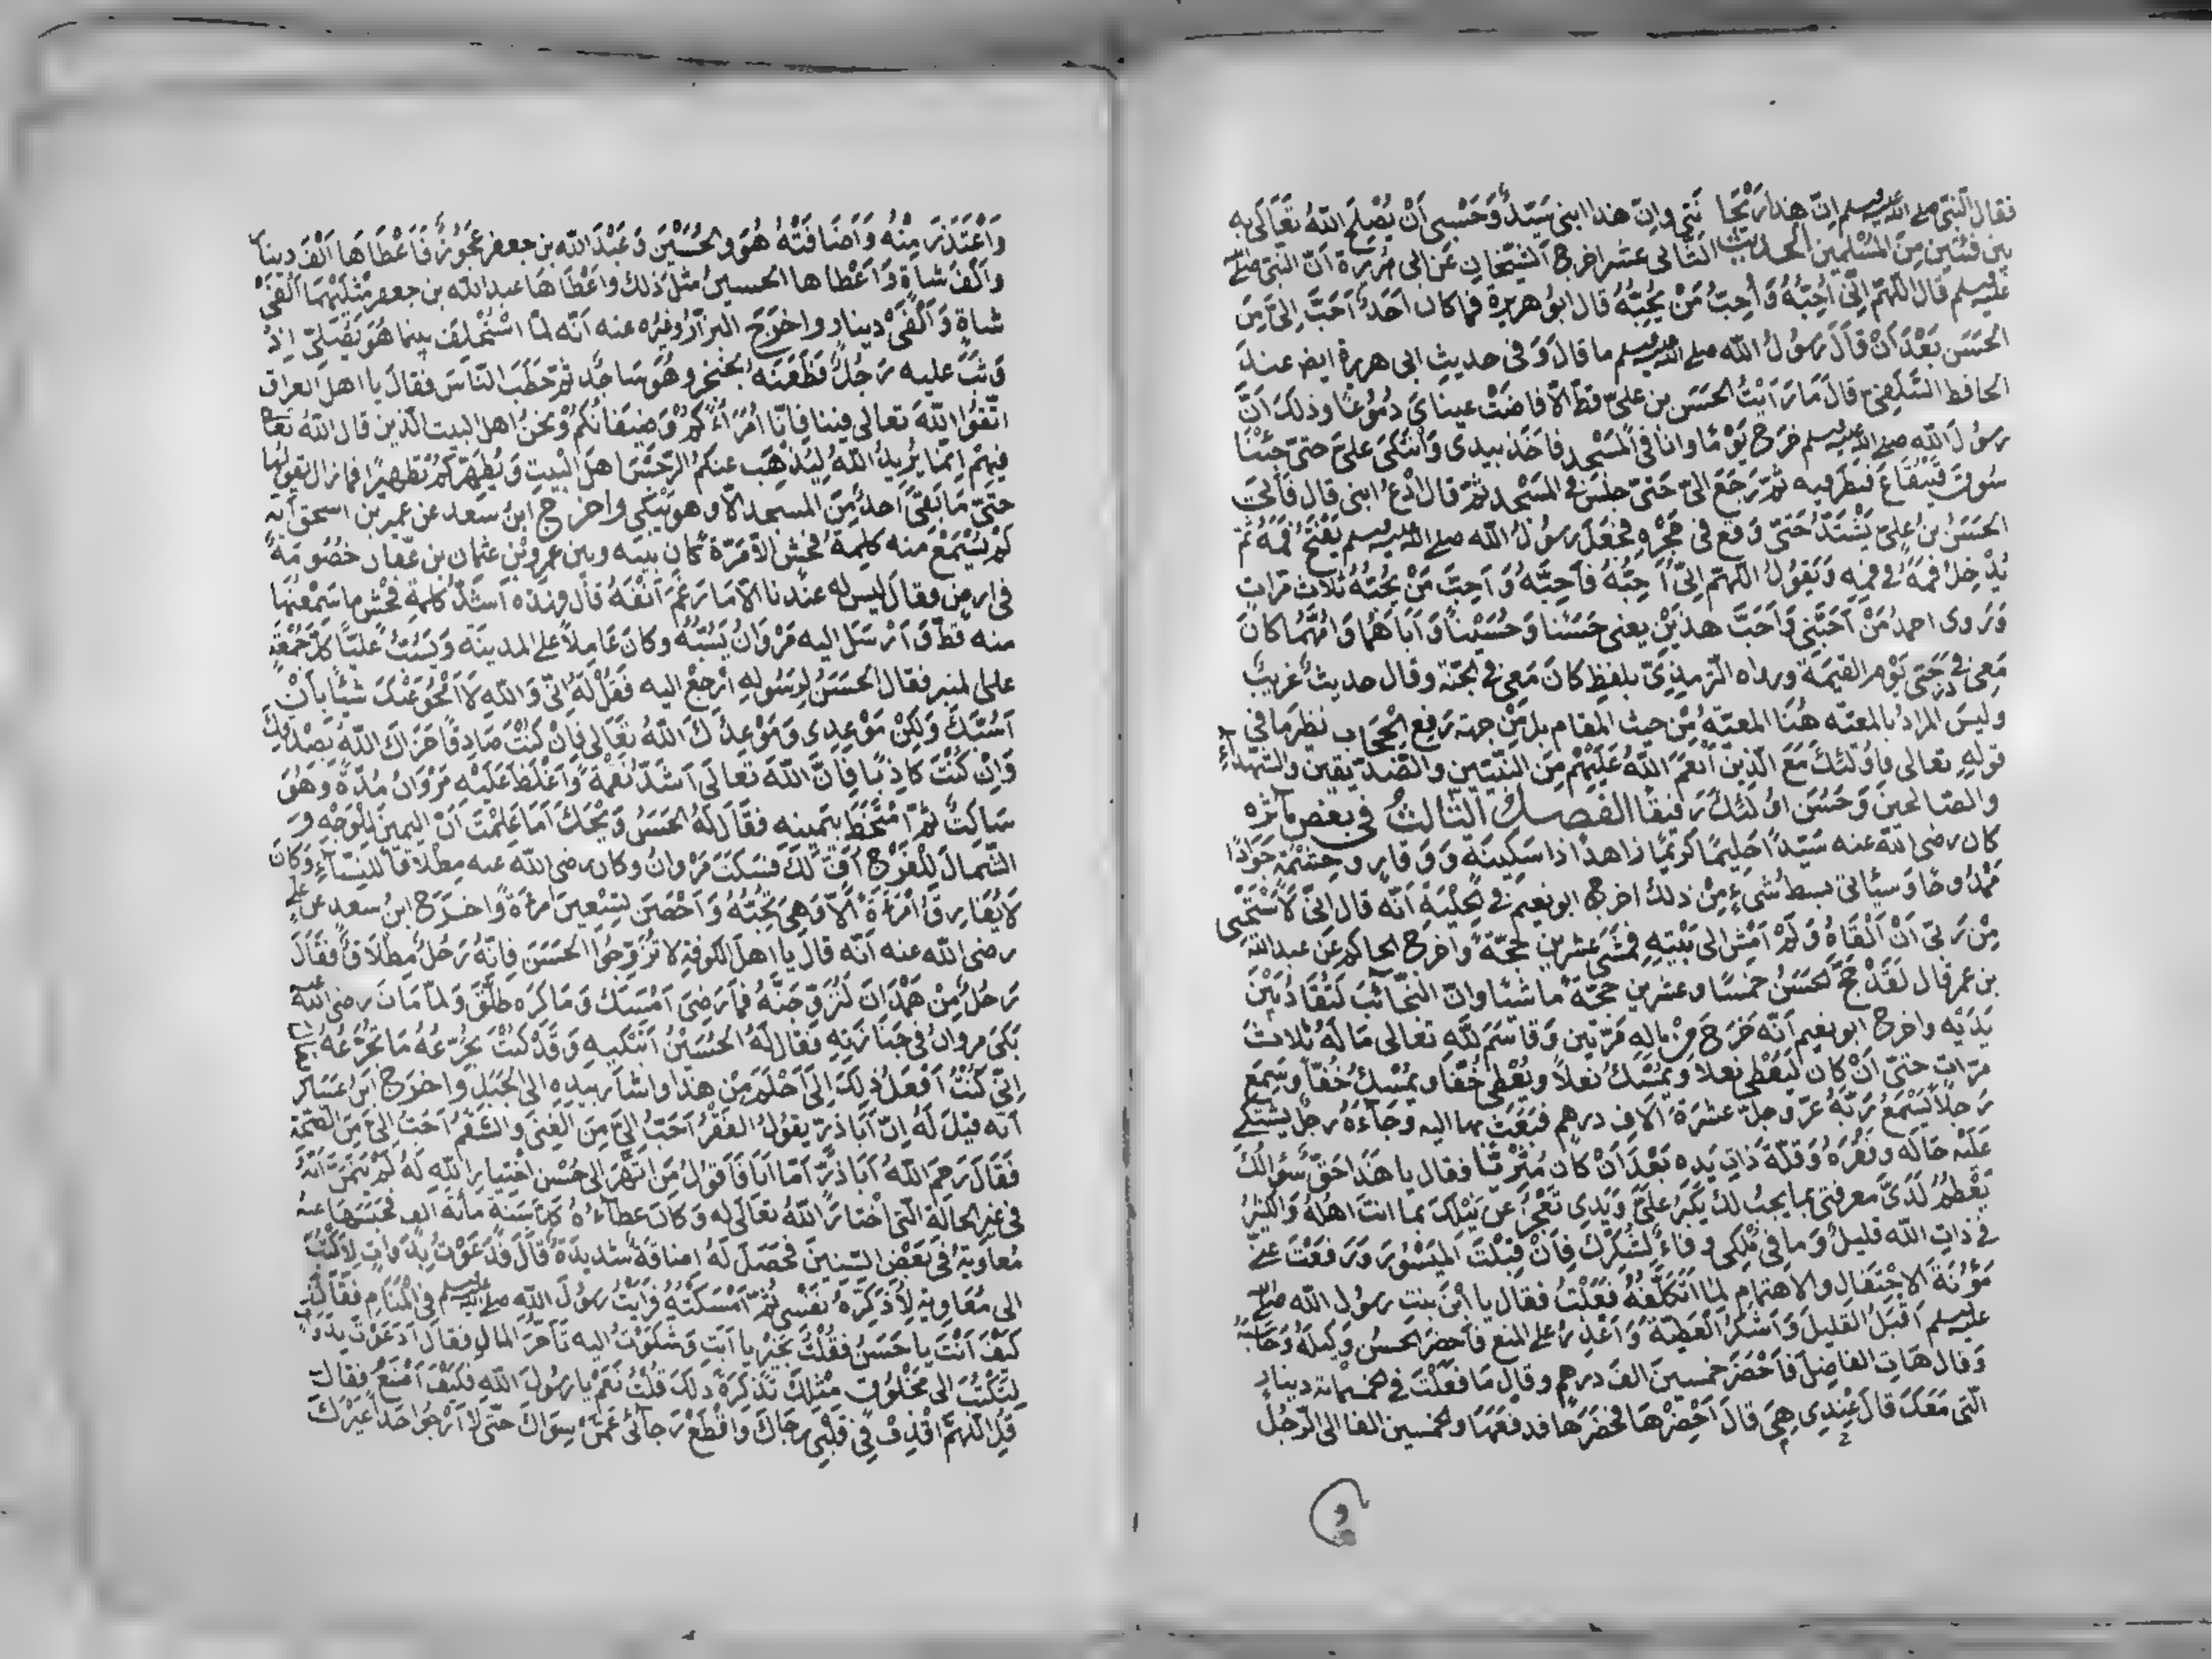 فقال النبي صلى الله عليه وسلم ان هذا رَيْحَانَتِي وان هذا ابني سَيّدٌ وَحَسْبِي اَنْ يُصْلِحَ اللهُ تَعَالَى بِهِ
بين فئتين مِنَ المُسْلِمِينَ الحديث الثاني عشر اخرج الشيخان عَن ابي هُرَيْرَة اَنّ النبي صلى الله
عليه وسلم قال اللّهُمّ اِنِّي اُحِبُّهُ وَاُحِبُّ مَنْ يُحِبُّهُ قال ابو هريرة فما كان اَحَدٌ اَحَبَّ اِلَيَّ مِنَ
الحَسَنِ بَعْدَ اَنْ قَالَ رَسُولُ اللّه صلى الله عليه وسلم ما قال وَفي حديثِ ابي هريرة ايض عند
الحافظ السَّلَفِيّ قال مَا رَاَيْتُ الحَسَنَ بن عَلِيّ قطّ الاّ فاضَتْ عيناىَ دُمُوعًا وذلك اَنَّ
رسولَ الله صلى الله عليه وسلم خَرَجَ يَوْمًا وانا في المَسْجِدِ فاخَذ بيدى وَاتَّكَى عَلَيَّ حتى جِئْنَا
سُوقَ قَيْنُقَاعَ فنظر فيه ثُمّ رَجَعَ اليّ حَتّى جلسَ في المَسْجِد ثمّ قال اُدْعُ ابني قال فَاَتَى
الحَسَنُ بنُ عَليّ يَشْتَدُّ حَتّى وَقع في حِجْرِهِ فجَعَلَ رَسُولُ الله صلى الله عليه وسلم يَفْتَحُ فَمَهُ ثُمّ
يُدْخِلُ فَمَهُ في فمِهِ وَيَقُولُ اللّهُمّ اِنّي اُحِبُّهُ فَاَحِبَّهُ وَاَحِبَّ مَنْ يُحِبُّهُ ثلاث مَرّات
وَرَوى احمدُ مَنْ اَحَبَّنِي وَاَحَبَّ هذَيْنِ يعني حَسَنًا وَحُسَيْنًا وَاَبَاهُمَا وَاُمَّهُمَا كَانَ
مَعِي في دَرَجَتِي يَوْم القيمَة ورواه الترمذِيّ بلفظِ كَانَ مَعِي في الجَنّة وقال حديثٌ غريبٌ
وليسَ المرادُ بالمعيّه هُنَا المعيّةُ مِنْ حيث المقام بل مِنْ جهة رَفعِ الحِجَابِ نظير ما في
قوله تعالى فاولئكَ مَعَ الذِينَ اَنْعَمَ اللهُ عَلَيْهِمْ مِنَ النَبِيّينِ والصّدّيقين والشّهدآءِ
والصالحينَ وَحَسُنَ اولئكَ رَفيقًا الفصلُ الثالثُ في بعض مآثرِه
كان رضى الله عنه سَيّدًا حَلِيمًا كَرِيمًا زاهدًا ذا سَكِينَةٍ وَوَقارٍ وحِشْمَةٍ جَوَادًا
مَمْدُوحًا وَسَيأتى بسط شيءٍ مِنْ ذلك اخرج ابو نعيم في الحِلْيَة انّه قال اِنّي لاَسْتَحْيي
مِنْ رَبّي اَنْ اَلْقَاهُ وَلَمْ اَمْشِ الى بَيْتِهِ فمَشَى عشرين حَجّة وَاخرج الحاكم عَن عبد الله
بن عمر قال لَقَدْ حَجّ الحَسَنُ خمسًا وعشرين حجّةً ماشيًا وان النجائب لَتُقَادُ بَيْنَ
يَدَيْهِ واخرج ابو نعيم انّه خَرَجَ مِنْ مالهِ مَرّتين وَقاسَمَ للّهِ تعالى مَالَهُ ثلاث
مرّات حَتى اَنْ كان لَيُعْطِي نعلاً ويُمْسِكُ نعلاً ويُعْطِي خُفّا ويُمْسِكُ خُفّا وسَمِعَ
رَجلاً يَسْئلُ رَبَّهُ عزّ وجلّ عشرَةَ آلاف درهمٍ فبَعَثَ بها اليه وجآءَهُ رجلٌ يشتكى
عَلَيْهِ حَالَه وفَقْرَهُ وَقلّةَ ذاتِ يَدِه بَعْدَ اَنْ كان مُثْرِيًا فقال يا هَذَا حَقُّ سُؤَالِكَ
يَعْظمُ لَدَىَّ معرفتى بما يجبُ لك يَكْبُرُ عَلَيَّ وَيَدِى تَعْجِزُ عَنْ نَيْلِكَ بما انتَ اهلُهُ وَالكَثِيرُ
في ذاتِ الله قليلٌ وَما في مِلْكِى وفاءٌ لِشُكْرِكَ فإنْ قبِلْتَ المَيْسُورَ وَرَفَعْتَ عَنّي
مَؤُنَةَ الاحْتِفَال والاهتمامِ لما اَتَكَلَّفُهُ فَعَلْتُ فقال يا ابْنَ بنت رسول الله صلى الله
عليه وسلم اَقْبَلُ القليلَ وَاَشْكُرُ العَطِيّةَ وَاَعْذِرُ على المنع فاَحضرَ الحسنُ وَكِيلَهُ وَحَاسَبَهُ
وَقال هَاتِ الفاضِلَ فَاَحْضَرَ خمسينَ الفَ درهمٍ وقال مَا فعَلْتَ في خمسمائة دينارٍ
الّتي مَعَكَ قال عِنْدِى هِيَ قالَ اَحْضِرْهَا فحَضَرَهَا فدفعَهَا والخمسين الفا الى الرّجُل
وَاعْتَذَرَ مِنْهُ وَاَضَافَتْهُ هُوَ والحُسَيْنَ وَعَبْدَ الله بن جعفر عَجُوزٌ فَاَعْطَاهَا اَلْفَ دِينار
واَلْفَ شاةٍ وَاَعْطاها الحسينُ مثلَ ذلك واعْطَاهَا عبد الله بن جعفر مِثْلَيْهِمَا اَلْفَىْ
شاةٍ وَاَلْفَىْ دينار واخرَجَ البزّارُ وغيره عنه انّه لمّا اسْتُخْلِفَ بينما هُوَ يُصَلّي اِذْ
وَثَبَ عليه رَجُلٌ فطَعَنَهُ بخنجر وهُوَ سَاجد ثم خطَبَ النّاسَ فقالَ يا اهلَ العراق
اتّقُوا اللّهَ تعالى فينا فاِنّا اُمَرَاءُكُمْ وَضِيفَانُكُمْ وَنحنُ اهلُ البيت الّذين قال اللهُ تعالى
فيهِمْ اِنّمَا يُرِيدُ اللّهُ لِيُذْهِبَ عنكمُ الرّجْسَ اهلَ البَيْتِ وَيُطَهِّرَكُمْ تَطْهِيرًا فما زال يقولها
حَتّى مَا بَقِىَ اَحدٌ مِنَ المسجد الاّ وهو يَبْكِي واخرج ابنُ سَعد عن عمير بن اسحق انّه
لَمْ يَسْمَعْ منه كلِمةَ فحشٍ الاّ مَرّةً كان بينَه وبينَ عمرو بْن عثمان بن عفّان خصُومَة
في ارضٍ فقالَ ليسَ له عنْدنا الاّ مَا رَغّمَ اَنْفَهُ قال فهذِه اَشَدُّ كلِمةِ فحْشٍ ما سَمِعْتُهَا
منه قطّ وَاَرْسَلَ اليه مَرْوَانُ يَسُبّهُ وكان عَامِلاً على المدينة وَيَسُبُّ عَليّا كلَّ جُمْعَةٍ
على المنبر فقال الحَسَنُ لِرَسُولهِ اِرْجِعْ اليه فَقُلْ لَهُ اِنّي وَاللّه لاَ اَمْحُو عَنْكَ شيئًا بِاَنْ
اَسُبّكَ وَلكِنْ مَوْعِدِى وَمَوْعِدُكَ اللّهُ تعَالى فاِنْ كُنْتَ صَادِقًا جَزَاكَ اللّهُ بِصْدْقكَ
وَاِنْ كُنْتَ كاذِبًا فاِنَّ اللّهَ تعالَى اَشَدُّ نقْمَةً وَاَغْلَظَ عَلَيْهِ مَرْوَانُ مَرّةً وهُوَ
سَاكتٌ ثمّ امْتَخَطَ بيمينه فقَالَ لهُ الحَسَنُ وَيْحَكَ اَمَا عَلِمْتَ اَنّ اليمينَ لِلْوَجْهِ وَ
الشّمالَ لِلْفَرْجِ اُفٍّ لَكَ فسَكَتَ مَرْوانُ وكان رضى الله عنه مِطْلاقًا للنّسَآءِ وَكان
لا يُفارِقُ امْرَأةً الاّ وَهِىَ تُحِبُّهُ وَاَحْصَنَ تِسْعِينَ امرَأةً وَاخرَجَ ابنُ سعدٍ عن علي
رضى الله عنه انّه قالَ يا اهلَ الكوفةِ لا تُزَوّجُوا الحَسَنَ فاِنّهُ رَجُلٌ مِطْلاَقٌ فقَالَ
رَجلٌ مِنْ هَمْدَانَ لَنُزَوّجَنّهُ فمَا رَضِىَ اَمْسَكَ وَمَا كَرِه طَلّقَ وَلمّا مَاتَ رضى الله عنه
بَكَى مروانُ في جَنَازَتِهِ فقَال لهُ الحُسَيْنُ اَتَبْكِيهِ وَقَدْ كُنْتَ تُجَرّعُهُ مَا تُجَرّعُهُ فقال
اِنّي كُنْتُ اَفْعَلُ ذلِكَ اِلَى اَحْلَمَ مِنْ هذا واشارَ بيدِه الى الجَبَلِ واخرج ابْن عسَاكر
اَنّه قيلَ لَهُ اِنّ اَبَا ذرّ يقولُ الفقْرُ اَحَبُّ اِلَيَّ مِنَ الغِنَى والسُّقْمُ اَحَبُّ اِلَيَّ مِنَ الصّحّة
فقَالَ رَحِمَ اللّهُ اَبَا ذرّ اَمّا اَنَا فَاَقُولُ مَنِ اتّكلَ الى حُسْنِ اخْتِيارِ اللّهِ لَهُ لَمْ يَتَمَنّ اَنّهُ
في غير الحَالَة الّتي اخْتَارَ اللّهُ تعَالى له وَكانَ عَطآءُهُ كلّ سَنَةٍ مائةَ الفٍ فحَبَسَهَا عنه
مُعَاوية في بَعْضِ السِّنِينَ فحَصَلَ لَهُ اضاقةٌ شديدَةٌ قالَ فدَعَوْتُ بِدَوَاتٍ لاَكْتُبَ
الى مُعَاوِيَة لاُذَكِّرَهُ نفْسِي ثُمّ اَمْسَكْتُ فرَاَيْتُ رَسُولَ اللّهِ صلى الله عليه وسلم في المَنَامِ فقَالَ لِي
كَيْفَ اَنْتَ يا حَسَنُ فقلْتُ بِخَيْرٍ يا اَبَتِ وَشكَوْتُ اليه تَاَخُّرَ المال فقال اَدَعَوْتَ بِدَوَاتٍ
لِتَكْتُبَ الى مَخْلُوقٍ مِثْلِكَ تُذَكِّرُهُ ذلك قلْتُ نَعَمْ يا رسُولَ اللّهِ فكَيْفَ اَصْنَعُ فقال
قلِ اللّهُمّ اقْذِفْ في قلْبِي رجَاكَ وَاقْطَعْ رَجآئي عَمّنْ سِوَاكَ حَتّى لاَ اَرْجُوا احَدًا غَيْرَكَ